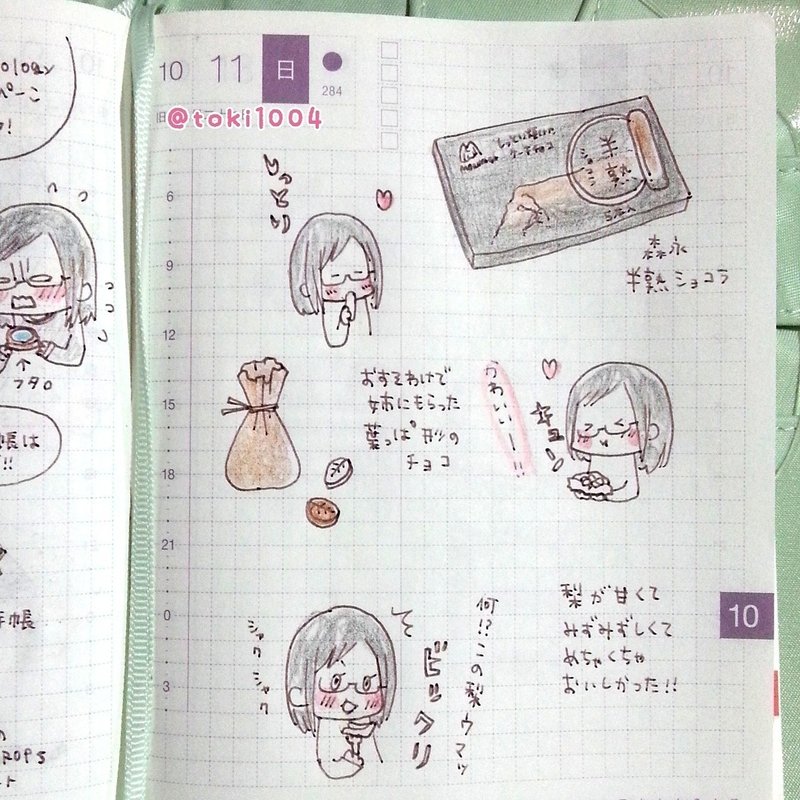 10 11 日
284
@toki1004
しっとり
しっとり焼いた
チーズチョコ
半熟
ショコラ
5本入
森永
半熟ショコラ
6
9
12
15
18
21
0
3
おすそわけで
姉にもらった
葉っぱ形の
チョコ
かわいいー!!
キュン
何!?この梨ウマッ
ビックリ
シャク
シャク
梨が甘くて
みずみずしくて
めちゃくちゃ
おいしかった!!
10
フタ
帳は
!!
手帳